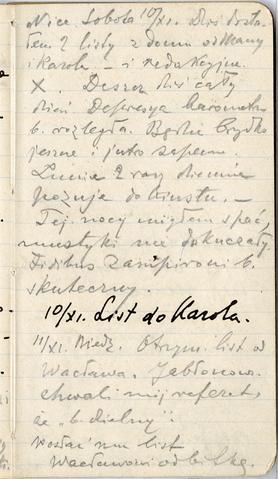 Nice Sobota 10/XI. Dziś dosta-
łem 2 listy z domu od Mamy
i Karola – i redakcyjne.
X. Deszcz dziś cały
dzień Depresya barometru
b. rozległa. Będzie brzydko
jeszcze i jutro zapewne
2 razy dziennie
pozuję do biustu. –
Tej nocy mogłem spać,
mustyki nie dokuczały.
Fidibus Zampironi b.
skuteczny.
10/XI. List do Karola.
11/XI. Niedz. Otrzym. list od
Wacława. Jabłonow.
chwali mój referat,
że "b. dzielny".
list
Wacławowi odbitkę.